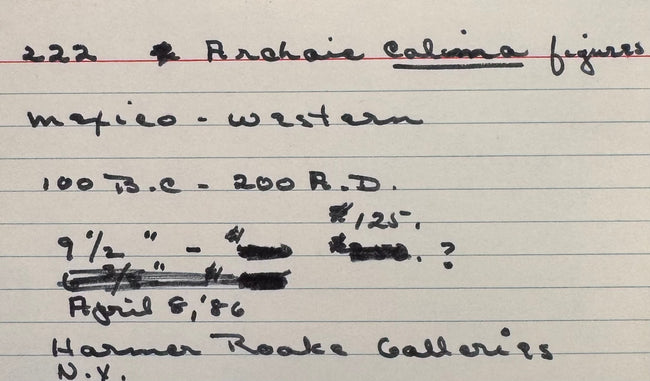 222 Archaic Calima figures
Mexico - western
100 B.C - 200 A.D.
$125.
9 1/2 " - $ $ . ?
April 8, '86
Harmer Rooke Galleries
N.Y.